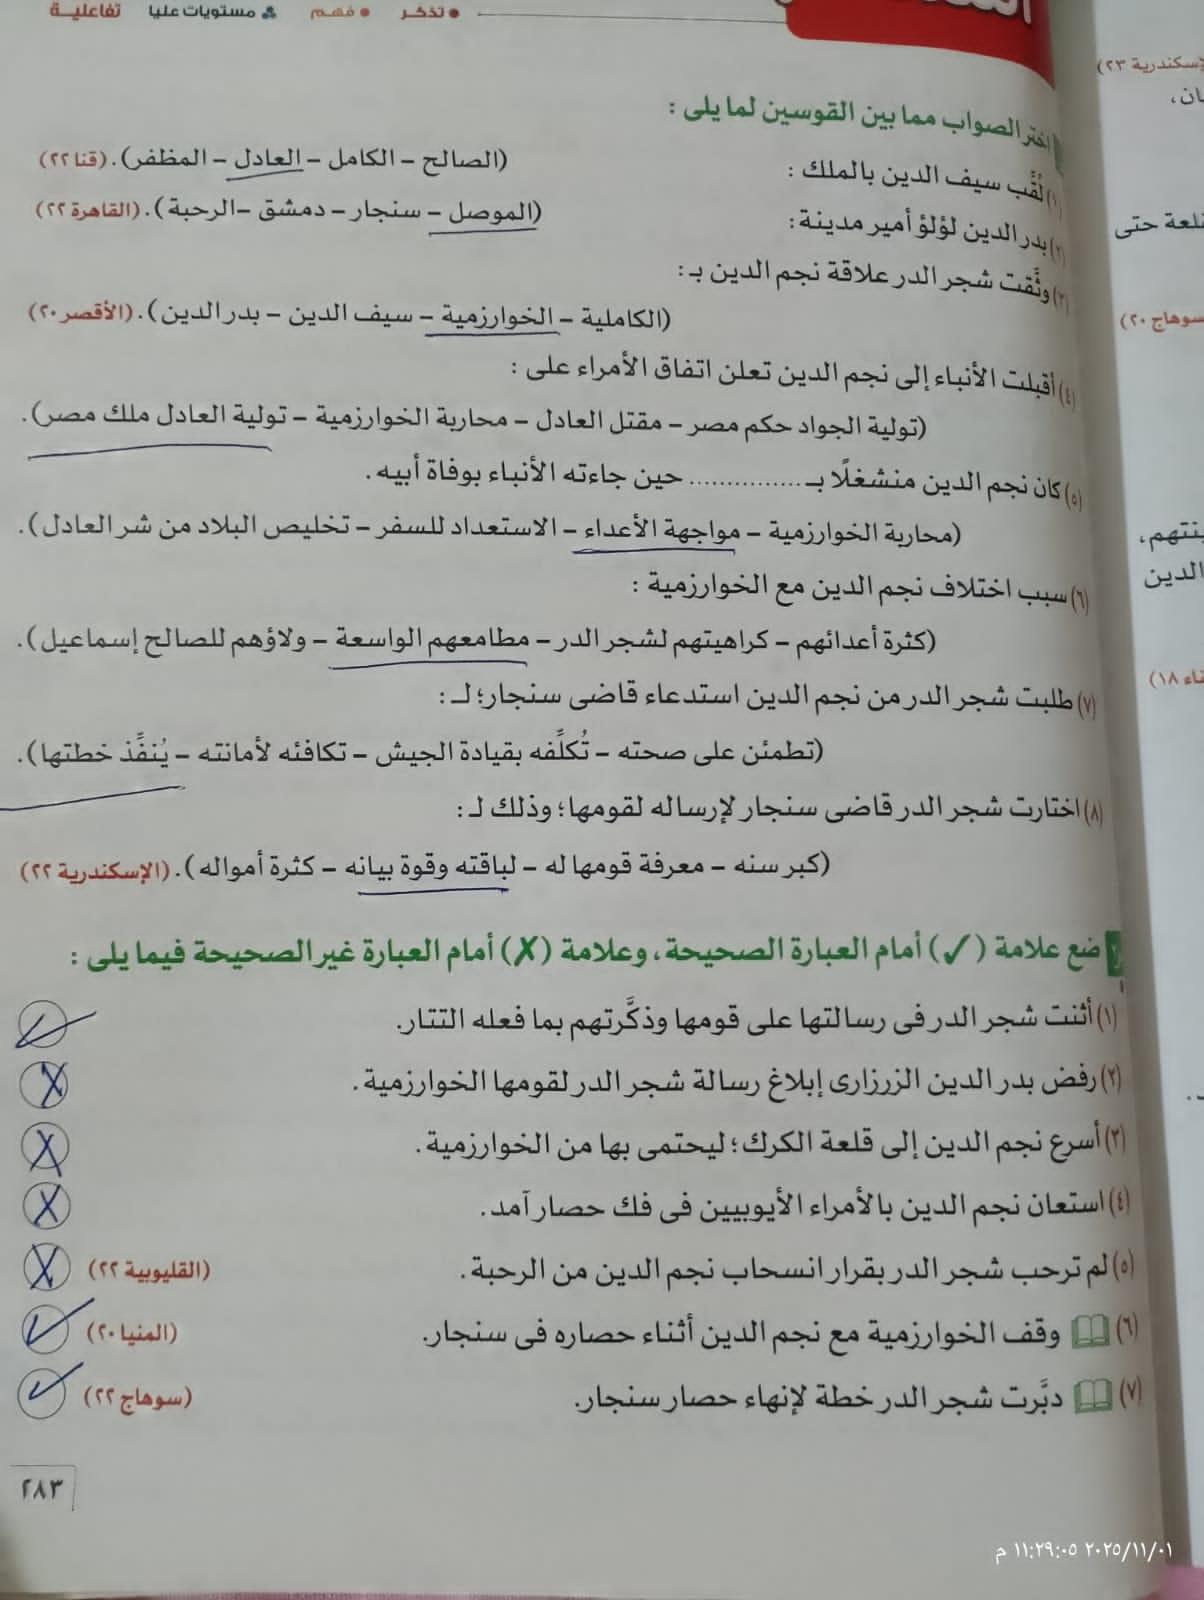 • تذكر • فهم مستويات عليا تفاعلية
اختر الصواب مما بين القوسين لما يلى :
(١) لُقِّب سيف الدين بالملك : (الصالح – الكامل – العادل – المظفر). (قنا ٢٢)
(٢) بدر الدين لؤلؤ أمير مدينة: (الموصل – سنجار – دمشق – الرحبة). (القاهرة ٢٢)
(٣) وثَّقت شجر الدر علاقة نجم الدين بـ:
(الكاملية – الخوارزمية – سيف الدين – بدر الدين). (الأقصر ٢٠)
(٤) أقبلت الأنباء إلى نجم الدين تعلن اتفاق الأمراء على :
(تولية الجواد حكم مصر – مقتل العادل – محاربة الخوارزمية – تولية العادل ملك مصر).
(٥) كان نجم الدين منشغلًا بـ ............... حين جاءته الأنباء بوفاة أبيه.
(محاربة الخوارزمية – مواجهة الأعداء – الاستعداد للسفر – تخليص البلاد من شر العادل).
(٦) سبب اختلاف نجم الدين مع الخوارزمية :
(كثرة أعدائهم – كراهيتهم لشجر الدر – مطامعهم الواسعة – ولاؤهم للصالح إسماعيل).
(٧) طلبت شجر الدر من نجم الدين استدعاء قاضى سنجار؛ لـ :
(تطمئن على صحته – تُكلِّفه بقيادة الجيش – تكافئه لأمانته – يُنفِّذ خطتها).
(٨) اختارت شجر الدر قاضى سنجار لإرساله لقومها؛ وذلك لـ :
(كبر سنه – معرفة قومها له – لباقته وقوة بيانه – كثرة أمواله). (الإسكندرية ٢٢)
ضع علامة (✓) أمام العبارة الصحيحة، وعلامة (✗) أمام العبارة غير الصحيحة فيما يلى :
(١) أثنت شجر الدر فى رسالتها على قومها وذكَّرتهم بما فعله التتار. ✓
(٢) رفض بدر الدين الزرزارى إبلاغ رسالة شجر الدر لقومها الخوارزمية. X
(٣) أسرع نجم الدين إلى قلعة الكرك؛ ليحتمى بها من الخوارزمية. X
(٤) استعان نجم الدين بالأمراء الأيوبيين فى فك حصار آمد. X
(٥) لم ترحب شجر الدر بقرار انسحاب نجم الدين من الرحبة. (القليوبية ٢٢) X
(٦) وقف الخوارزمية مع نجم الدين أثناء حصاره فى سنجار. (المنيا ٢٠) ✓
(٧) دبَّرت شجر الدر خطة لإنهاء حصار سنجار. (سوهاج ٢٢) ✓
٢٨٣
قلعة حتى
سوهاج ٢٠)
الدين
٢٠٢٥/١١/٠١ ١١:٢٩:٠٥ م